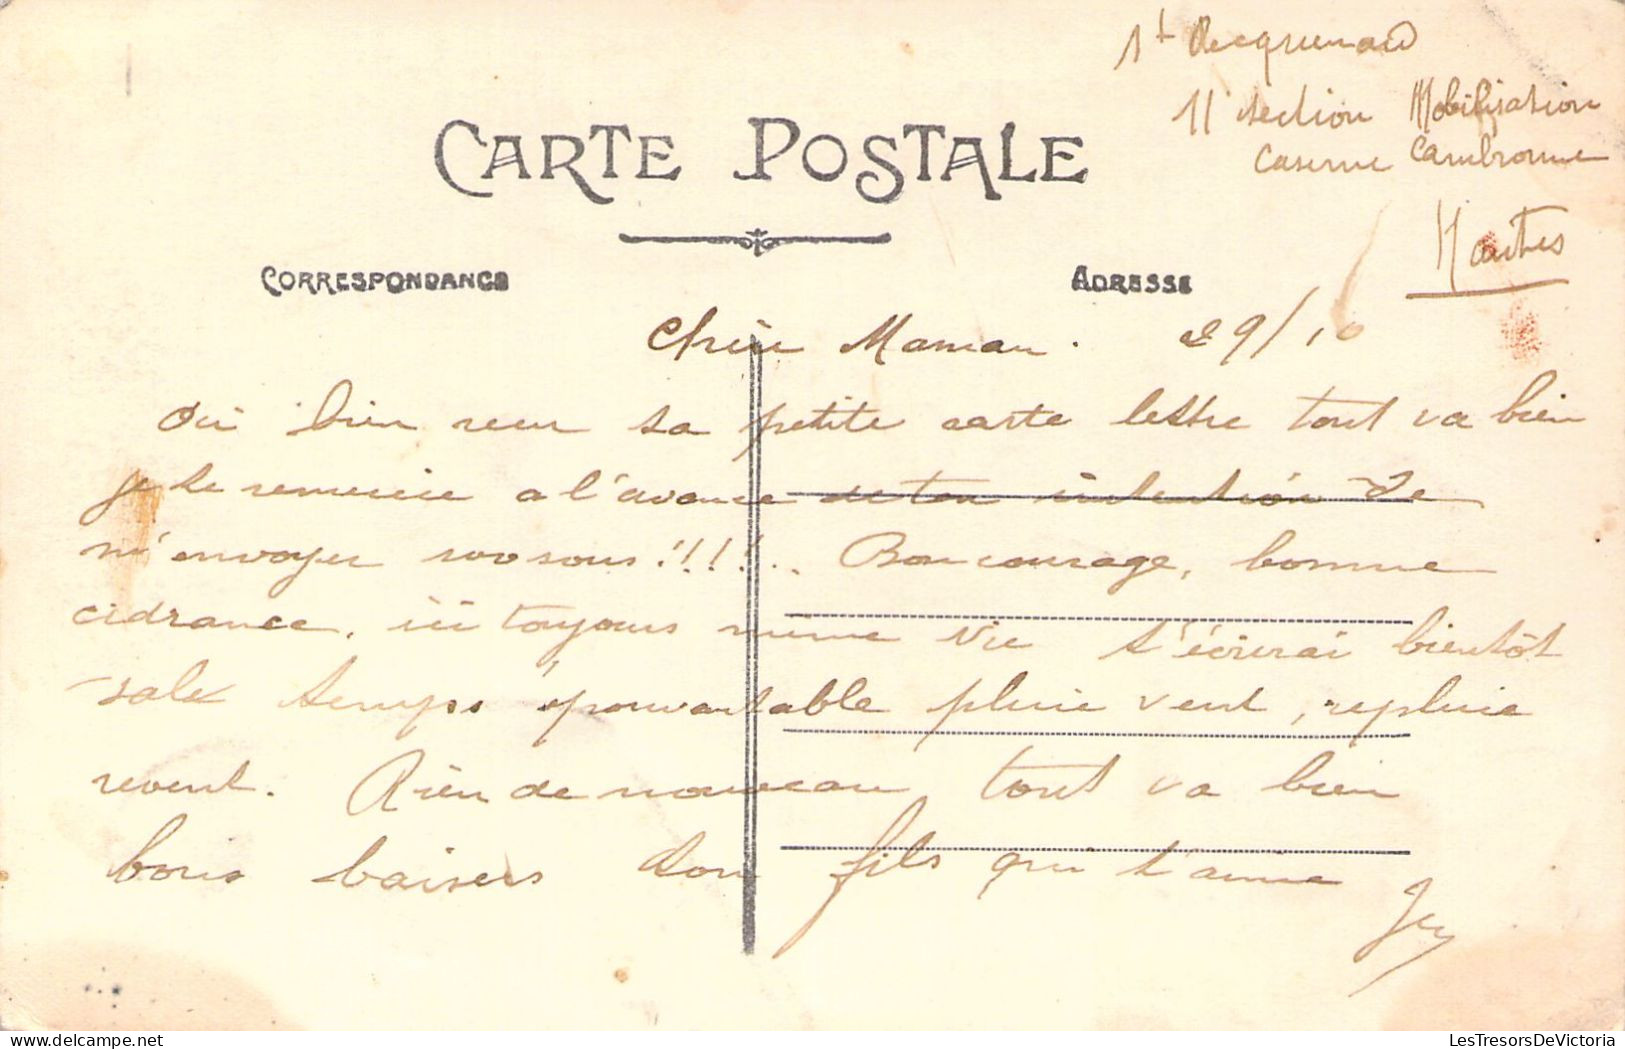 11 section Mobilisation
Caserne Cambronne
Nantes
CARTE POSTALE
CORRESPONDANCE
ADRESSE
Chère Maman. 29/10
bien reçu ta petite carte lettre tout va bien
je te remercie a l'avance de ton intention de
m'envoyer 100 sous!!!!.. Bon courage, bonne
cidrance, ici toujours même vie t'écrirai bientôt
sale temps épouvantable pluie vent, repluie
revent. Rien de nouveau tout va bien
bons baisers ton fils qui t'aime
LesTresorsDeVictoria